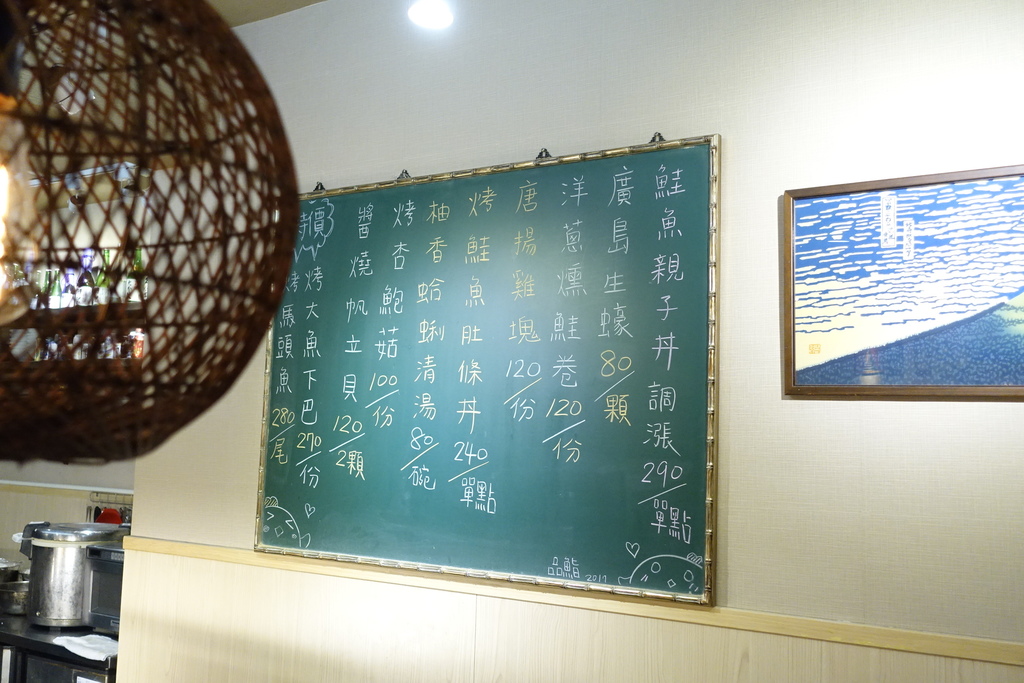 鮭魚親子丼調漲290/單點
廣島生蠔80/顆
洋蔥燻鮭卷120/份
唐揚雞塊120/份
烤鮭魚肚條丼240/單點
柚香蛤蜊清湯80/碗
烤杏鮑菇100/份
醬燒帆立貝120/2顆
特價
烤大魚下巴270/份
烤馬頭魚280/尾
品鮨2017